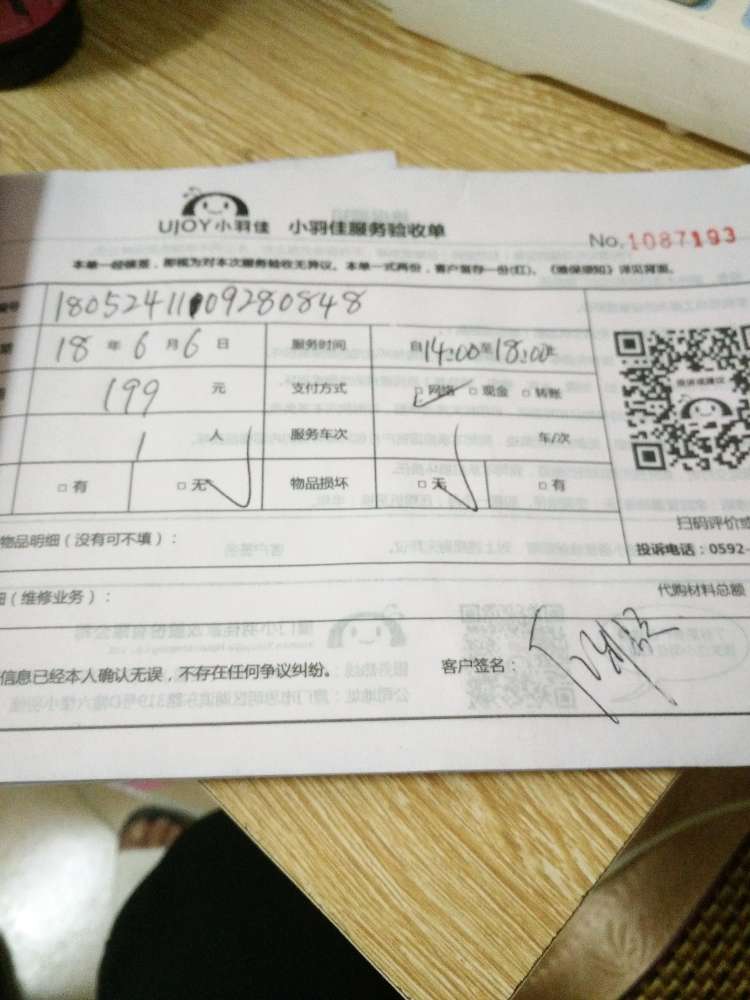 UJOY小羽佳 小羽佳服务验收单
No.1087193
本单一经签签,即视为对本次服务验收无异议。本单一式两份,客户留存一份(红)。《维保须知》详见背面。
号 1805241109280848
期 18 年 6 月 6 日 服务时间 自14:00至18:00止
199 元 支付方式 □网络 □现金 □转账
1 人 服务车次 车/次
□有 □无 物品损坏 □无 □有
物品明细(没有可不填):
扫码评价或
投诉电话:0592-
细(维修业务): 代购材料总额
信息已经本人确认无误,不存在任何争议纠纷。 客户签名: